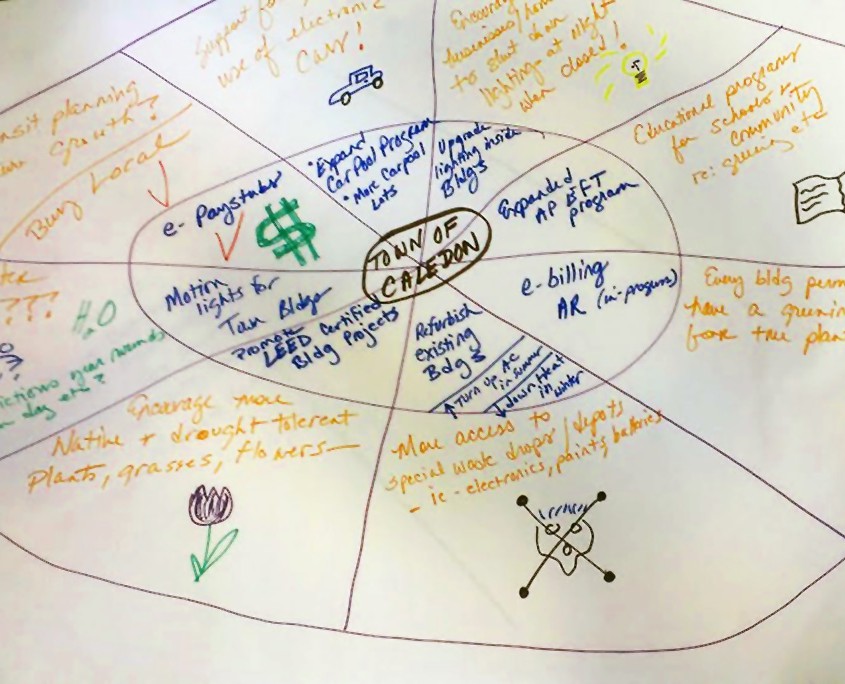 Support for
use of electronic
Cars!
Encourage
businesses/
to shut down
lighting at night
when closed!
Educational programs
for schools &
community
re: greening etc
nsit planning
Growth?
Buy Local
e-Paystubs
$
• Expand
Car Pool Program
• More Carpool
Lots
Upgrade
lighting inside
Bldgs
Expanded
AP EFT
program
TOWN OF
CALEDON
e-billing
AR (in-progress)
Motion
lights for
Town Bldgs
Promote
LEED Certified
Bldg Projects
Refurbish
existing
Bdgs
↑ Turn up AC
in summer
↓ down Heat
in winter
Every bldg perm
have a greening
tree plan
???
H2O
ictions near
day etc?
Encourage more
Native + drought tolerent
Plants, grasses, flowers—
More access to
special waste drops/depots
- ie - electronics, paints, batteries